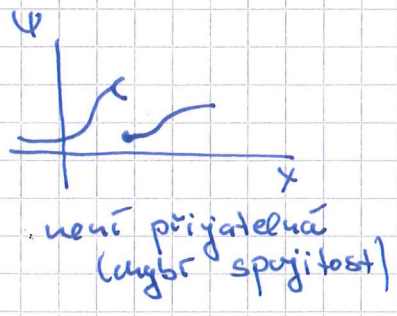 ψ
x
není přijatelná
(chybí spojitost)